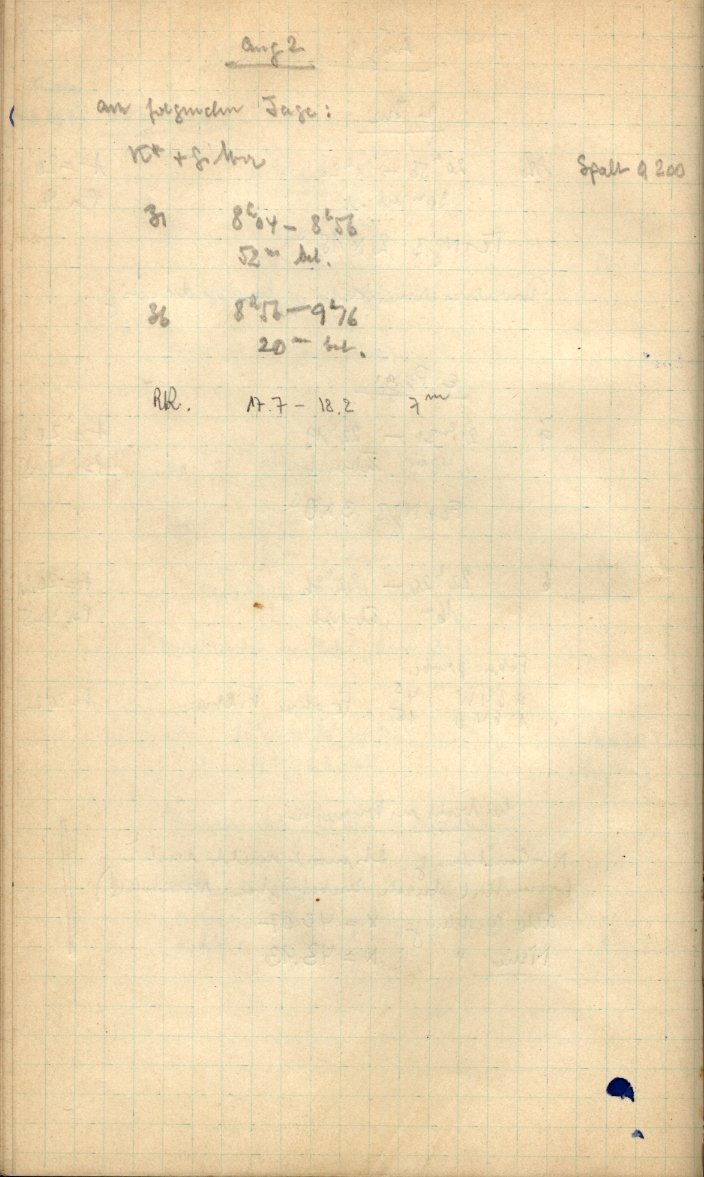 Aug 2
am folgenden Tage:
Spalt 0.200
31 8h04 – 8h56
52m bel.
36 8h56 – 9h16
20m bel.
RR. 17.7 – 18.2 7m